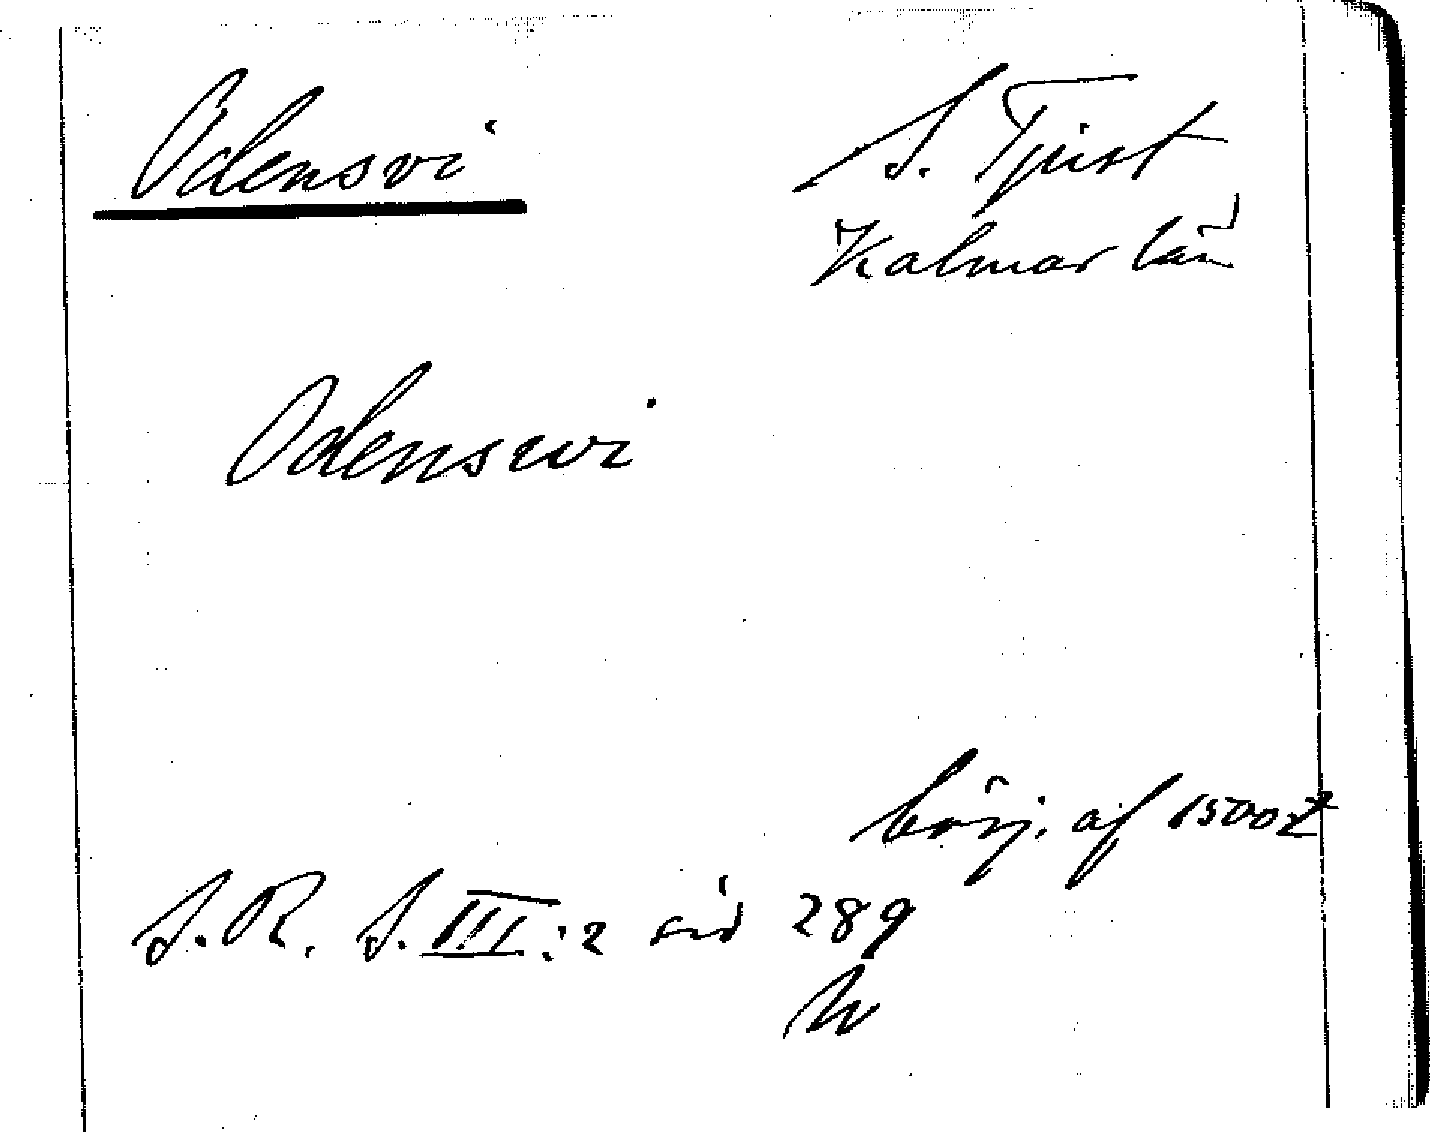 Odensvi
S. Tjust
Kalmar län
Odenswi
börj. af 1500 t
S. R. S. III: 2 sid 289